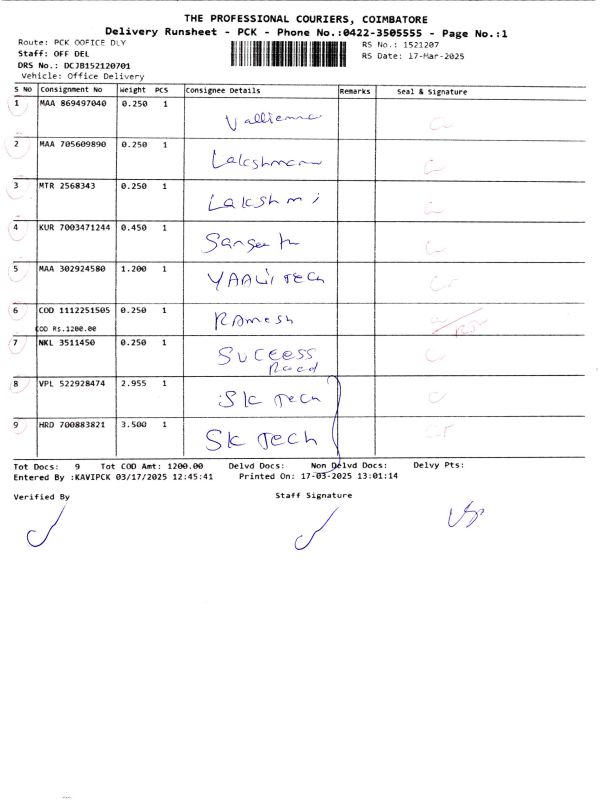 THE PROFESSIONAL COURIERS, COIMBATORE
Delivery Runsheet - PCK - Phone No.:0422-3505555 - Page No.:1
Route: PCK OOFICE DLY RS No.: 1521207
Staff: OFF DEL RS Date: 17-Mar-2025
DRS No.: DCJB152120701
Vehicle: Office Delivery
S NO Consignment No Weight PCS Consignee Details Remarks Seal & Signature
1 MAA 869497040 0.250 1
2 MAA 705609890 0.250 1 Lakshmanan
3 MTR 2568343 0.250 1 Lakshmi
4 KUR 7003471244 0.450 1
5 MAA 302924580 1.200 1 YAALI TECH
6 COD 1112251505 0.250 1 RAmesh
COD Rs.1200.00
7 NKL 3511450 0.250 1 SUCCESS
Road
8 VPL 522928474 2.955 1 SK Tech
9 HRD 700883821 3.500 1 SK Tech
Tot Docs: 9 Tot COD Amt: 1200.00 Delvd Docs: Non Delvd Docs: Delvy Pts:
Entered By :KAVIPCK 03/17/2025 12:45:41 Printed On: 17-03-2025 13:01:14
Verified By Staff Signature